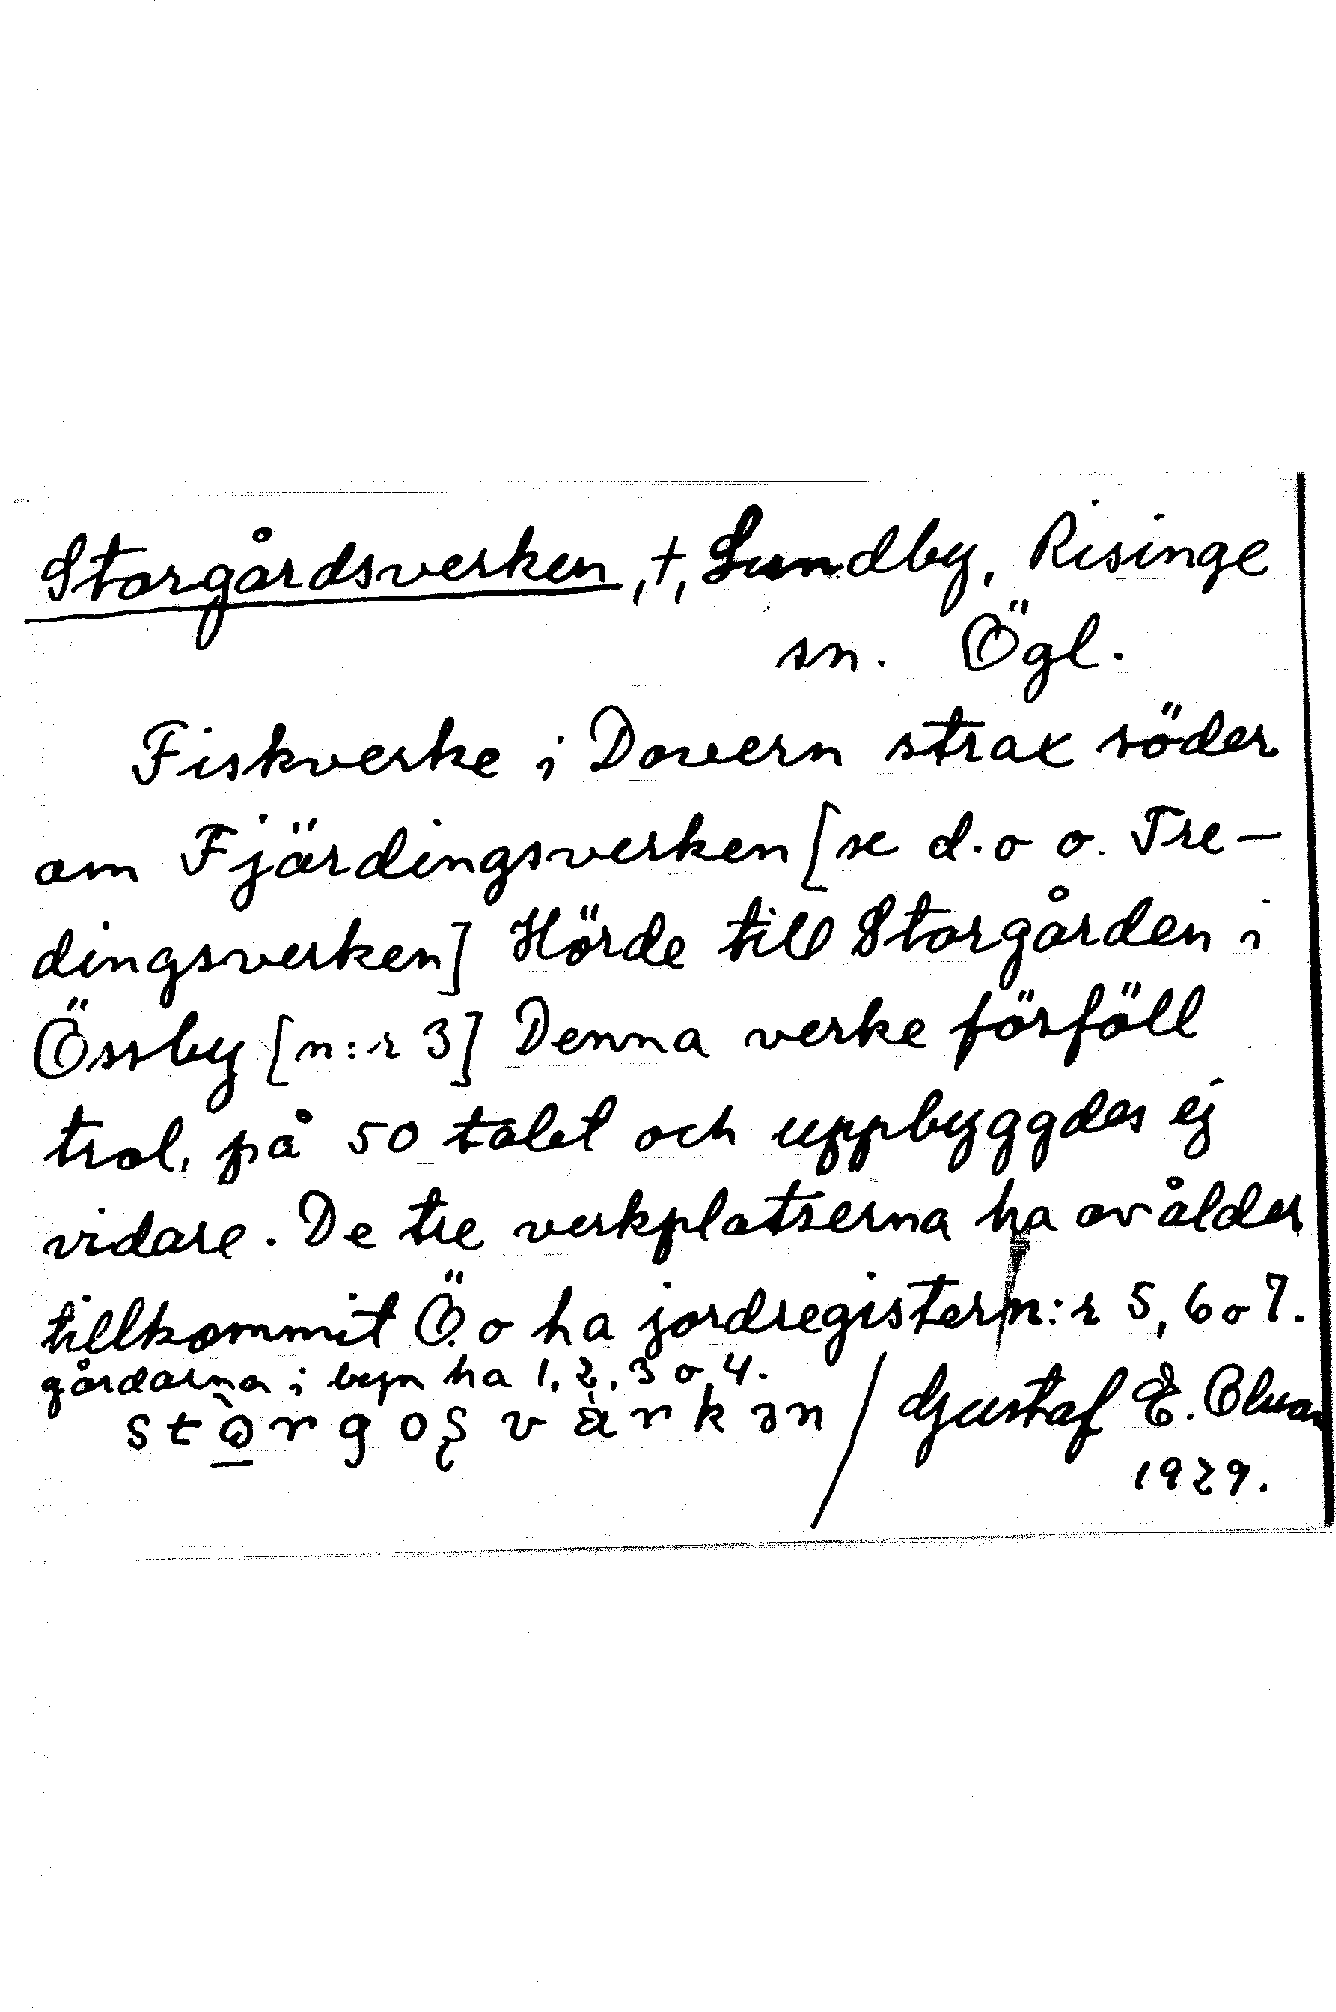 Storgårdsverken, †, Sundby, Risinge
sn. Ögl.
Fiskverke i Dovern strax söder
om Fjärdingsverken [se d.o o. Tre-
dingsverken] Hörde till Storgården i
Össby [n:r 3] Denna verke förföll
trol. på 50 talet och uppbyggdes ej
vidare. De tre verkplatserna ha av ålder
tillkommit Ö. o ha jordregister n:r 5, 6 o 7.
gårdarna i byn ha 1, 2, 3 o 4.
/ Gustaf E.
1929.